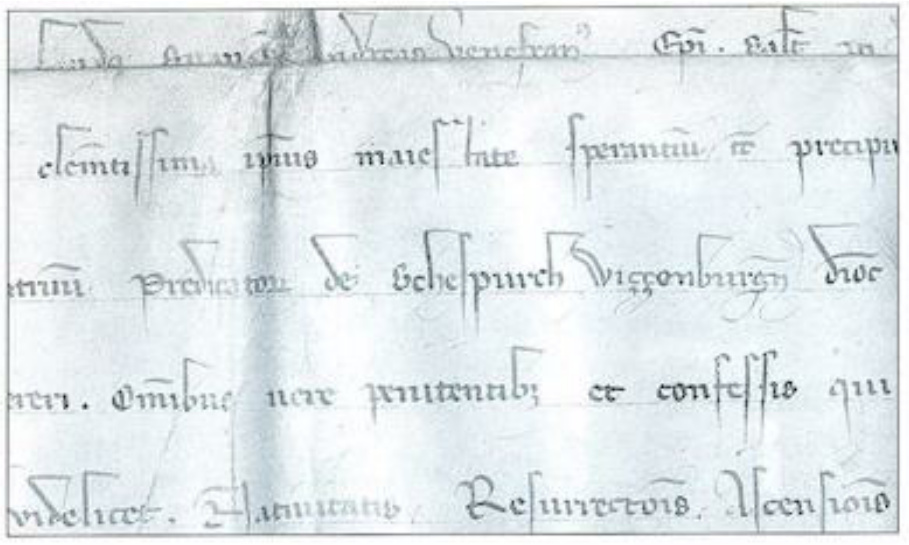 Andreas Venefran Epi. Salt in
clemtissima ipius maiestate sperantiu et precipu
Predicatou de Schespurch Wiszenburgn dioc
Omibus uere penitentibz et confessis qui
videlicet. Natiuitatis. Resurrectois. Ascensiois